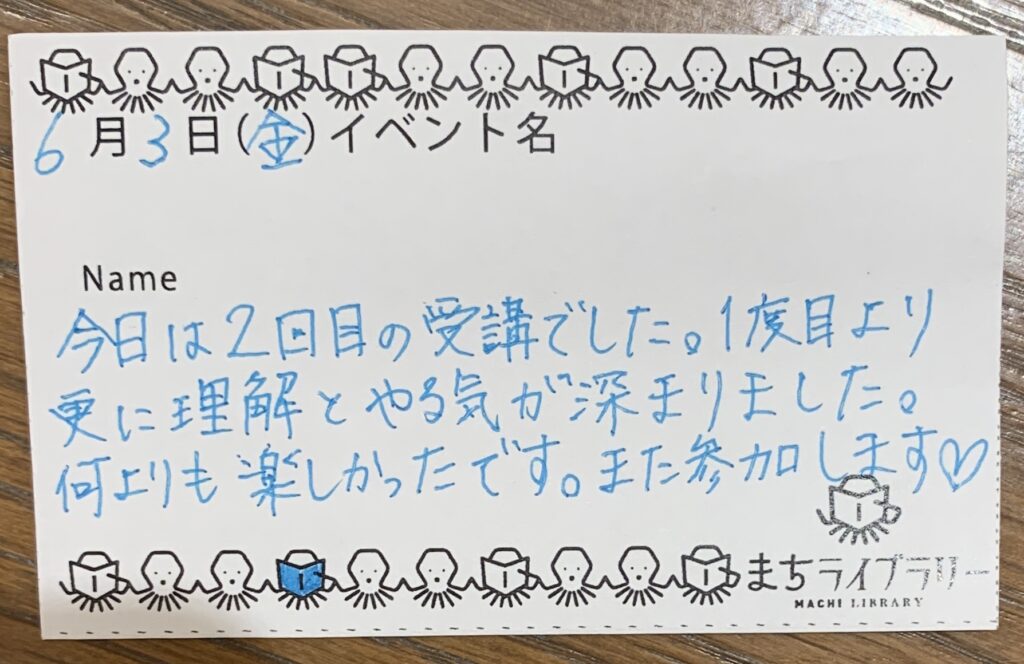 6月3日(金)イベント名
Name
今日は2回目の受講でした。1度目より
更に理解とやる気が深まりました。
何よりも楽しかったです。また参加します♡
まちライブラリー
MACHI LIBRARY